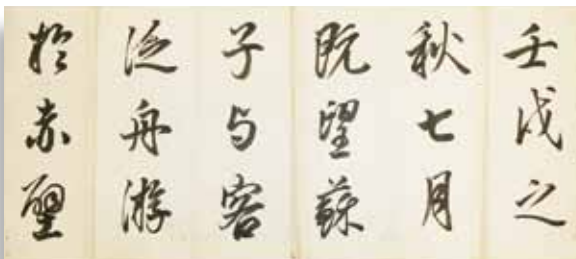 壬戌之
秋七月
既望蘇
子与客
泛舟游
於赤壁